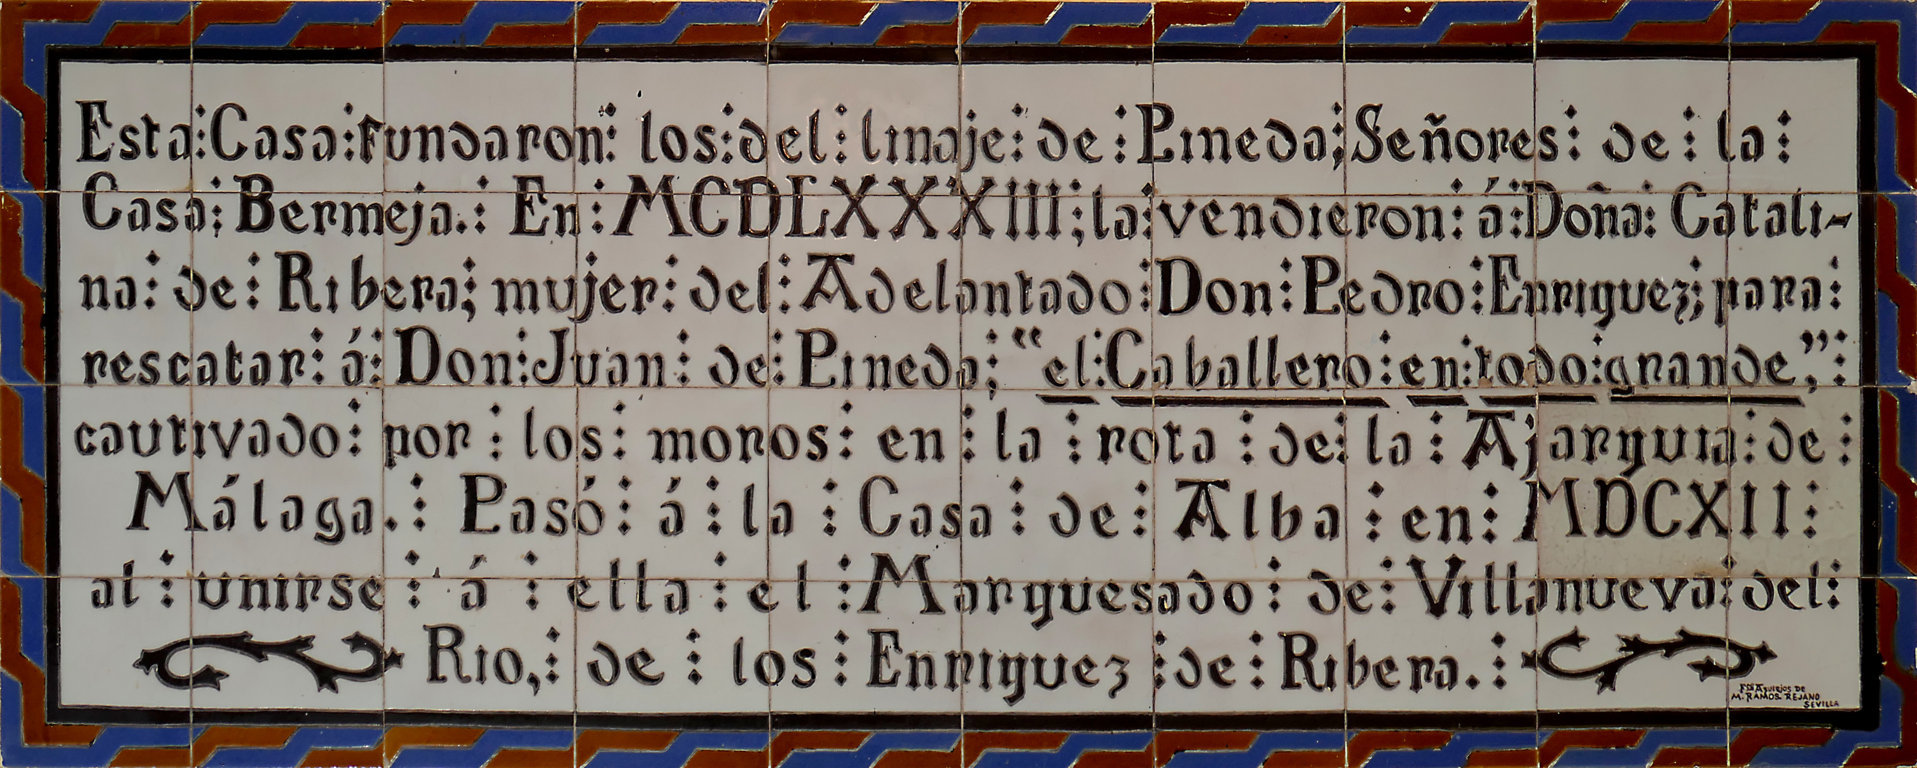 Esta⁝Casa⁝fundaron⁝ los⁝del⁝linaje⁝de⁝Pineda;Señores⁝ de⁝la⁝
Casa; Bermeja.⁝ En⁝MCDLXXXIII;la⁝vendieron⁝á⁝Doña⁝ Catali-
na⁝de⁝Ribera; mujer⁝del⁝Adelantado⁝Don⁝Pedro⁝Enriquez; para⁝
rescatar⁝á⁝Don⁝Juan⁝de⁝Pineda; “el⁝Caballero⁝en⁝todo⁝grande,”⁝
cautivado⁝por⁝los⁝moros⁝en⁝la⁝rota⁝de⁝la⁝Ajarquia⁝de⁝
Málaga.⁝ Pasó⁝á⁝la⁝Casa⁝de⁝Alba⁝en⁝MDCXII⁝
al⁝unirse⁝á⁝ella⁝el⁝Marquesado⁝de⁝Villanueva⁝del⁝
Rio,⁝de⁝los⁝Enriquez⁝de⁝Ribera.⁝
Fca Azulejos DE
M. RAMOS REJANO
SEVILLA